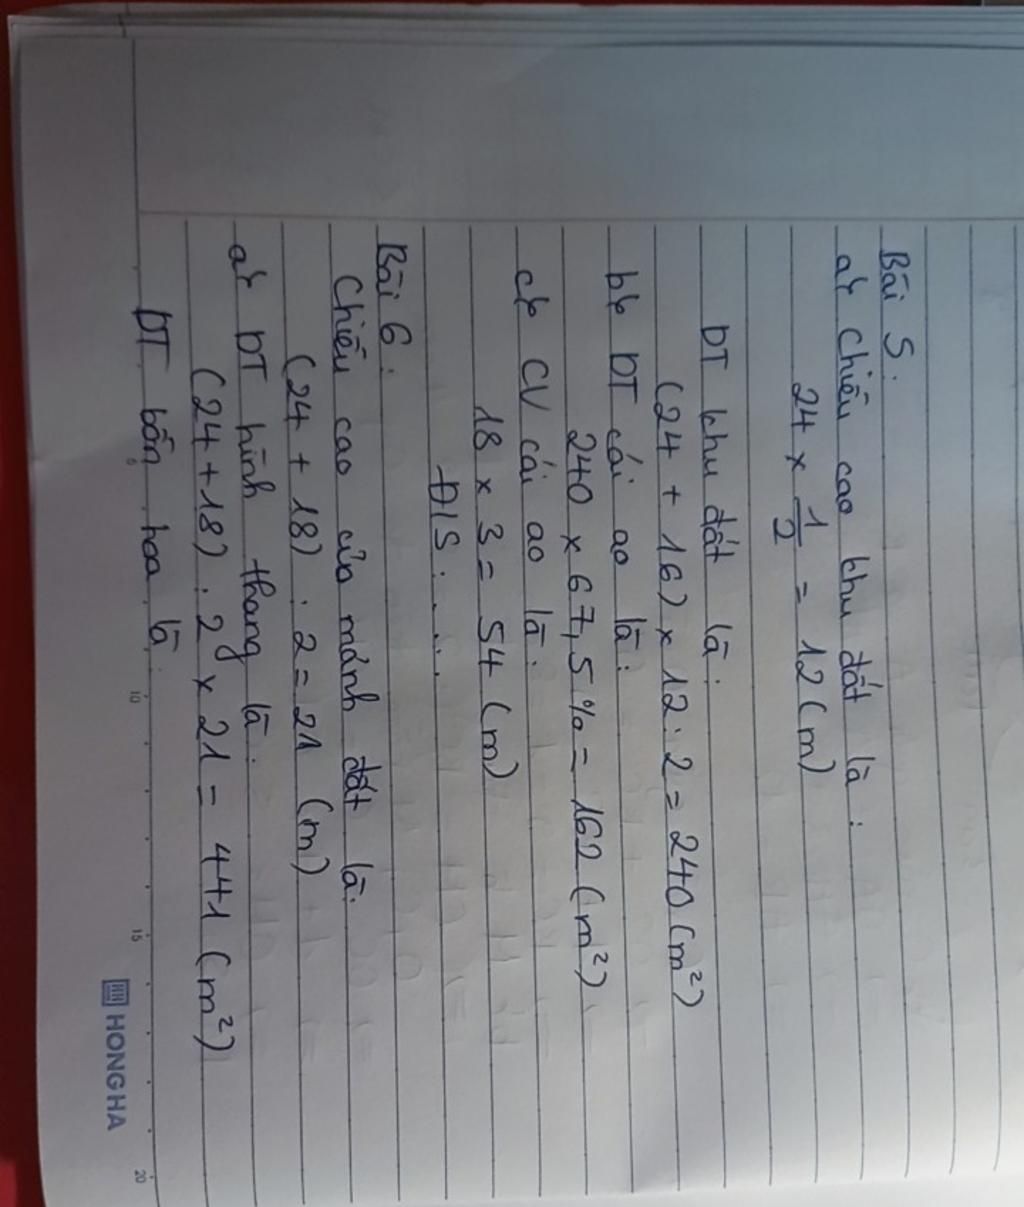 Bài 5.
a, Chiều cao khu đất là :
24 × 1/2 = 12 (m)
DT khu đất là :
(24 + 16) × 12 : 2 = 240 (m²)
b, DT cái ao là :
240 × 67,5% = 162 (m²)
c, CV cái ao là :
18 × 3 = 54 (m)
Đ/S : . . . .
Bài 6 :
Chiều cao của mảnh đất là :
(24 + 18) : 2 = 21 (m)
a, DT hình thang là :
(24 + 18) : 2 × 21 = 441 (m²)
DT bồn hoa là
10
15
20
HONG HA